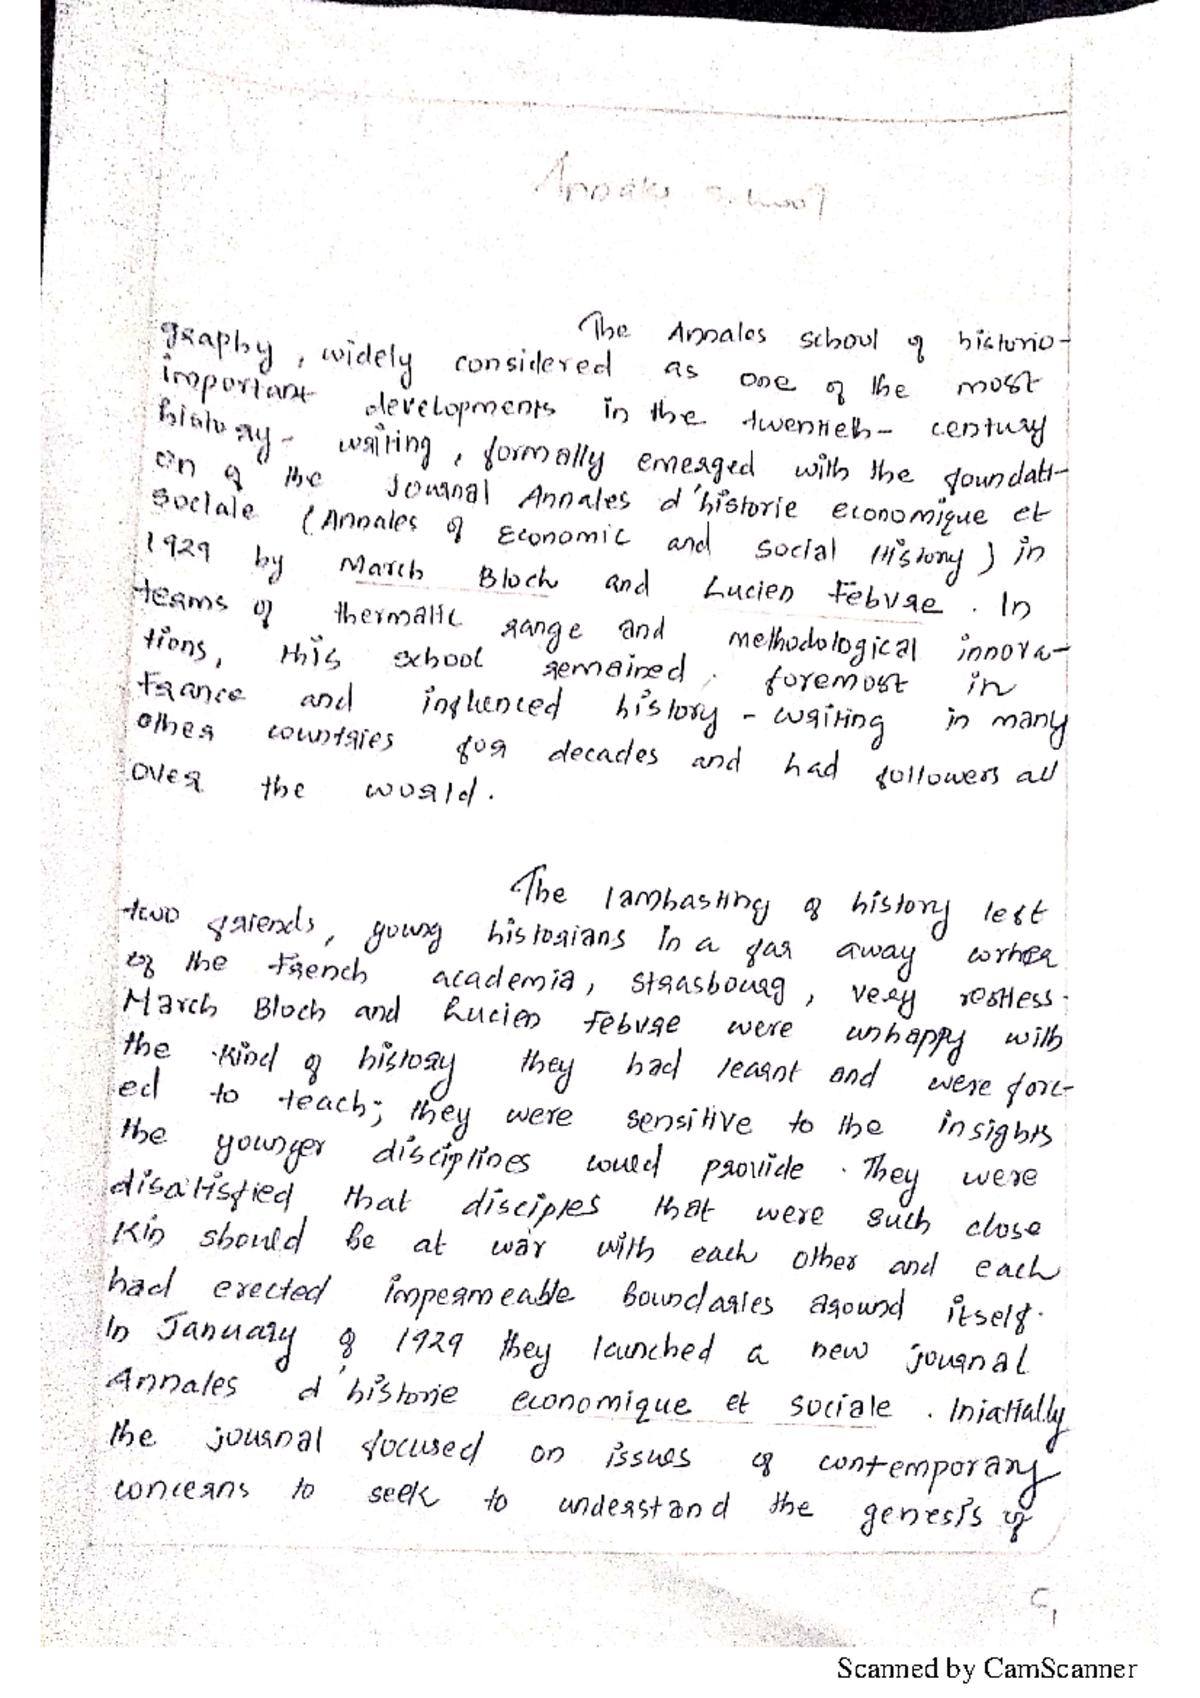 Annales
The Annales school of historio-
graphy, widely considered as one of the most
important developments in the twentieth-century
history-writing, formally emerged with the foundati-
on of the Journal Annales d'historie economique et
sociale (Annales of Economic and Social History) in
1929 by March Bloch and Lucien Febvre. In
terms of thermatic range and methodological innova-
tions, this school remained foremost in
France and influenced history-writing in many
other countries for decades and had followers all
over the world.
The lambasting of history left
two friends, young historians In a far away corner
of the French academia, Strasbourg, very restless.
March Bloch and Lucien Febvre were unhappy with
the kind of history they had learnt and were forc-
ed to teach; they were sensitive to the insights
the younger disciplines could provide. They were
disatisfied that disciples that were such close
Kin should be at war with each other and each
had erected impermeable boundaries around itself.
In January of 1929 they launched a new journal
Annales d'historie economique et sociale. Iniatially
the journal focused on issues of contemporary
concerns to seek to understand the genesis of
Scanned by CamScanner